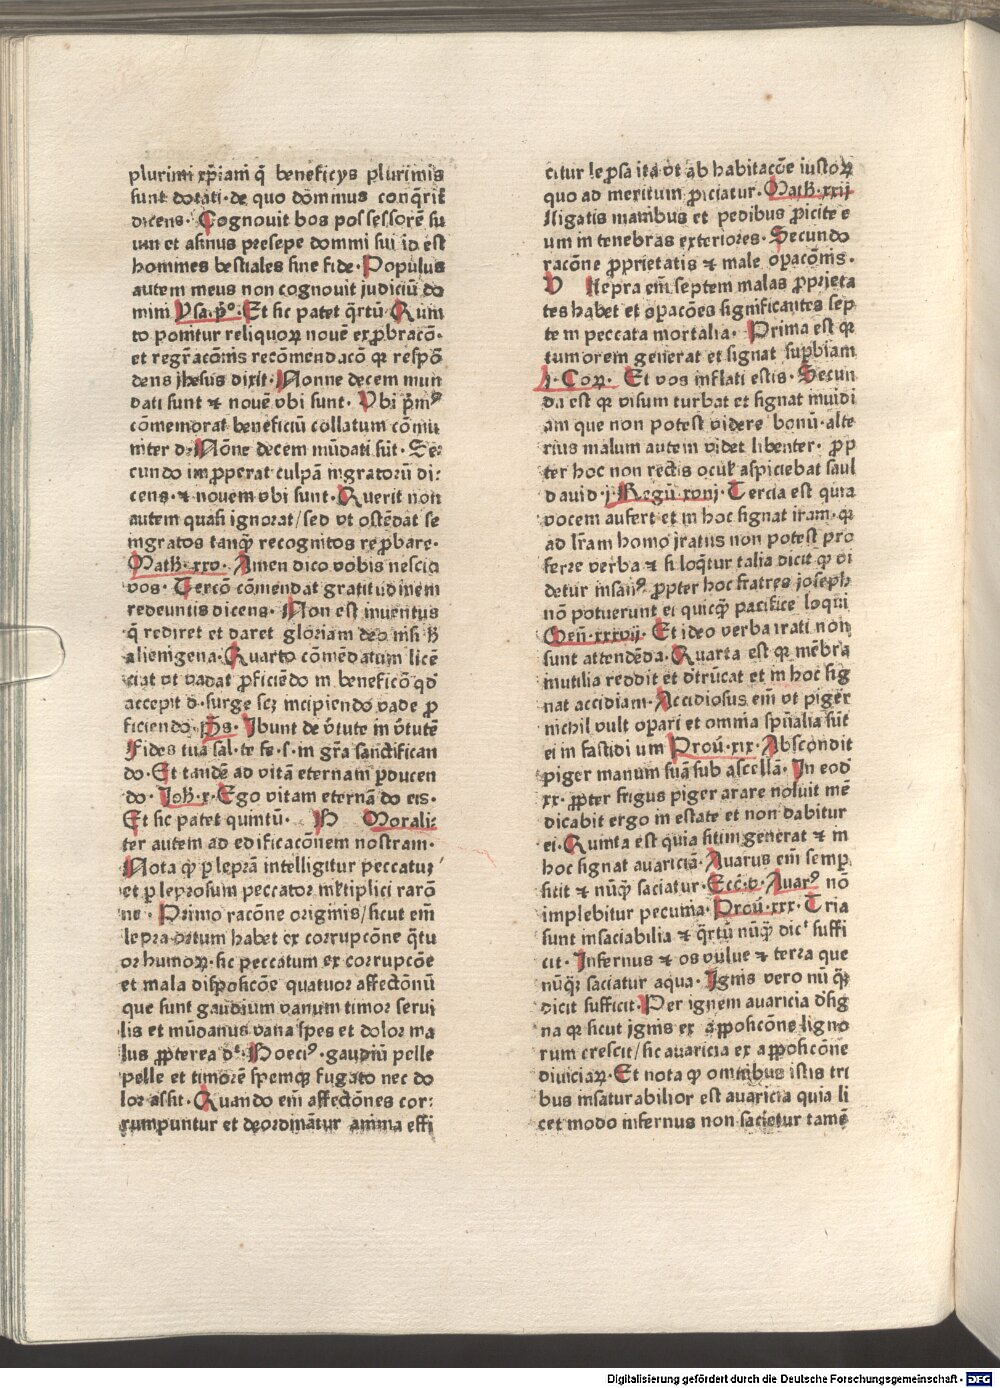 plurimi xp̄iani q̄ beneficijs plurimis
sunt dotati· de quo dominus conq̄rit̄
dicens· Cognouit bos possessorē su
um et asinus presepe domini sui id est
homines bestiales sine fide· Populus
autem meus non cognouit judiciū do
mini Ysa·pͦ· Et sic patet q̄rtū· Quin
to ponitur reliquoꝝ nouē exꝓbracō·
et regr̄acōnis recōmendacō qꝛ respō
dens jhesus dixit· Nonne decem mun
dati sunt ⁊ nouē vbi sunt· Vbi p̄mꝰ
cōmemorat beneficiū collatum cōmu
niter d· Nōne decem mūdati sūt· Se·
cundo improperat culpā ingratorū di·
cens· ⁊ nouem vbi sunt· Querit non
autem quasi ignorat/sed vt ostēdat se
ingratos tanqͣ recognitos reprobare·
Math·xxv· Amen dico vobis nescio
vos· Tercō cōmendat gratitudinem
redeuntis dicens· Non est inuentus
q̄ rediret et daret gloriam deo nisi h̄
alienigena· Quarto cōmēdatum licē
ciat vt vadat ꝓficiēdo in beneficō qd̄
accepit d· surge scꝫ incipiendo vade ꝓ
ficiendo· p̄s· Ibunt de v̄tute in v̄tutē
Fides tua sal·te fe·s· in gr̄a sanctifican
do· Et tandē ad vitā eternam ꝑducen
do· Joh·x· Ego vitam eternā do eis·
Et sic patet quintū· H Morali·
ter autem ad edificacōnem nostram·
Nota qꝙ ꝑ leprā intelligitur peccatuꝫ
et ꝑ leprosum peccator ml̄tiplici rarō
ne· Primo racōne originis/sicut em̄
lepra ortum habet ex corrupcōne q̄tu
or humoꝝ· sic peccatum ex corrupcōe
et mala disposicōe quatuor affectōnū
que sunt gaudium vanum timor serui
lis et mūdanus vana spes et dolor ma
lus ꝓpterea dꝫ· Boeciꝰ· gaudiū pelle
pelle et timorē spemqꝫ fugato nec do
lor assit· Quando em̄ affectōnes cor·
rumpuntur et deordinātur anima effi
citur leprosa ita vt ab habitacōe iustoꝝ
quo ad meritum ꝓiciatur· Math·xxij
Iligatis manibus et pedibus ꝓicite e
um in tenebras exteriores· Secundo
racōne ꝓprietatis ⁊ male oꝑacōnis·
V Lepra em̄ septem malas ꝓprieta
tes habet et oꝑacōes significantes sep
tem peccata mortalia· Prima est qꝛ
tumorem generat et signat suꝑbiam
j·Coꝝ· Et vos inflati estis· Secun
da est qꝛ visum turbat et signat inuidi
am que non potest videre bonū· alte
rius malum autem videt libenter· ꝓp
ter hoc non rectis ocul' aspiciebat saul
dauid j Regū xviij· Tercia est quia
vocem aufert et in hoc signat iram· qꝛ
ad Ir̄am homo jratus non potest pro
ferre verba ⁊ si loq̄tur talia dicit qꝙ vi
detur insanꝰ ꝓpter hoc fratres joseph
nō potuerunt ei quicqͣ pacifice loqui
Gen̄·xxxvij· Et ideo verba irati non
sunt attendēda· Quarta est qꝛ mēbra
mutilia reddit et dt̄rūcat et in hoc sig
nat accidiam· Accidiosus em̄ vt piger
nichil vult oꝑari et omnia spūalia sūt
ei in fastidium Prou·xix· Abscondit
piger manum suā sub ascella· In eod̄
xx· ꝓpter frigus piger arare noluit mē
dicabit ergo in estate et non dabitur
ei· Quinta est quia sitim generat ⁊ in
hoc signat auariciā· Auarus em̄ semꝑ
sitit ⁊ nūqͣ saciatur· Ecc̄·v· Auarꝰ nō
implebitur pecunia· Prou·xxx· Tria
sunt insaciabilia ⁊ q̄rtū nūqͣ dic' suffi
cit· Infernus ⁊ os vulue ⁊ terra que
nūqͣ saciatur aqua· Ignis vero nū qͣ
dicit sufficit· Per ignem auaricia d̄sig
na qꝛ sicut jgnis ex apposicōne ligno
rum crescit/sic auaricia ex apposicōne
diuiciaꝝ· Et nota qꝙ omnibus istis tri
bus insaturabilior est auaricia quia li
cet modo infernus non sacietur tamē
Digitalisierung gefördert durch die Deutsche Forschungsgemeinschaft - DFG